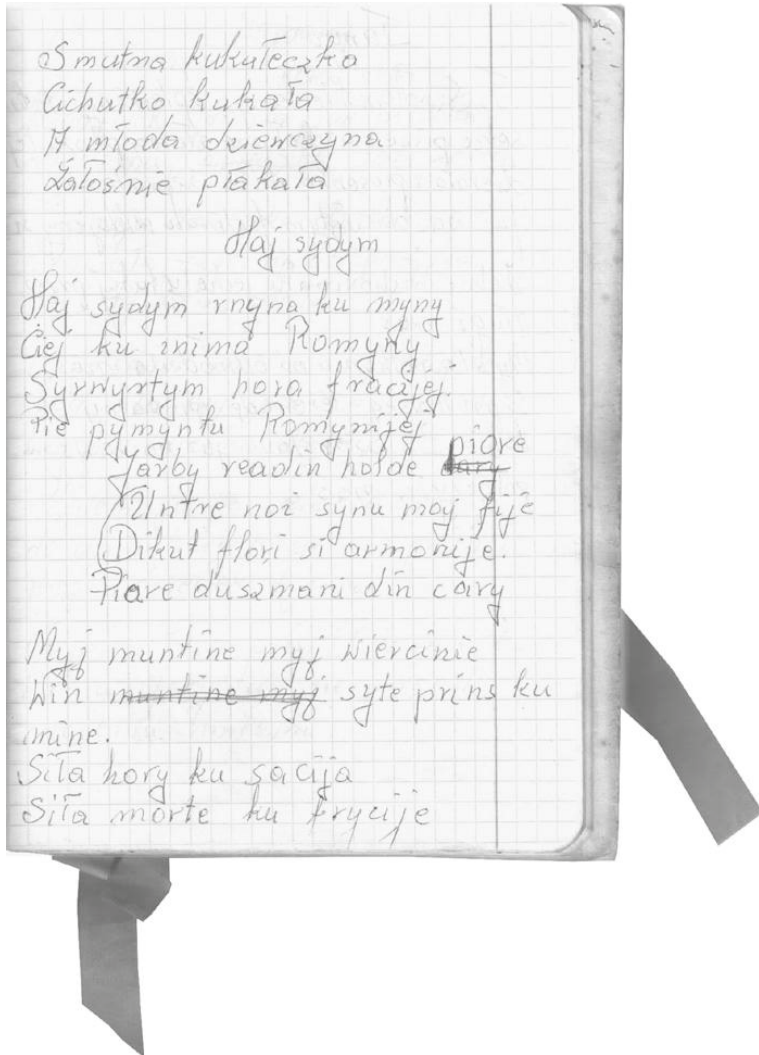 Smutna kukułeczko
Cichutko kukała
A młoda dziewczyna
Żałośnie płakała
Haj sydym
Haj sydym rnyna ku myny
Ciej ku inima Romyny
Syrwyrtym hora fracijej.
Pie pymyntu Romynijej
Jarby readin holde piare
Untre noi synu maj fije
Dikut flori si armonije.
Piare duszmani din cary
Myj muntine myj wiercinie
Win muntine myj syte prins ku
mine.
Siła hory ku sacija
Siła morte ku frycije